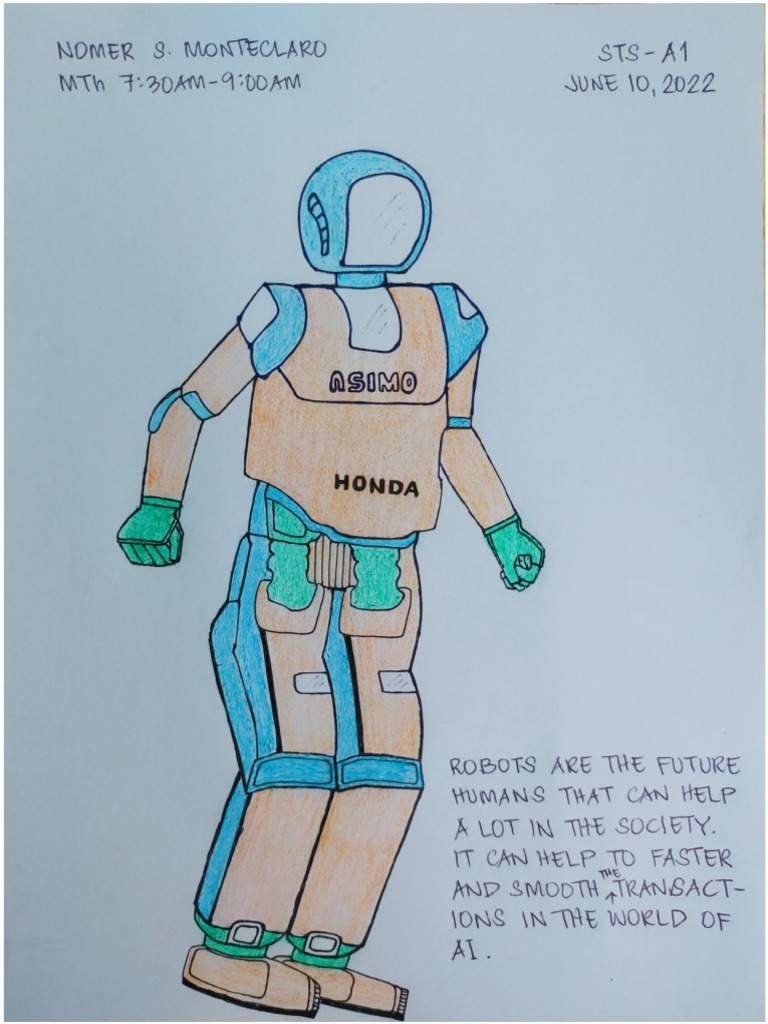 NOMER S. MONTECLARO
STS-A1
MTh 7:30AM-9:00AM
JUNE 10, 2022
ASIMO
HONDA
ROBOTS ARE THE FUTURE
HUMANS THAT CAN HELP
A LOT IN THE SOCIETY.
IT CAN HELP TO FASTER
AND SMOOTH THE TRANSACT-
IONS IN THE WORLD OF
AI.